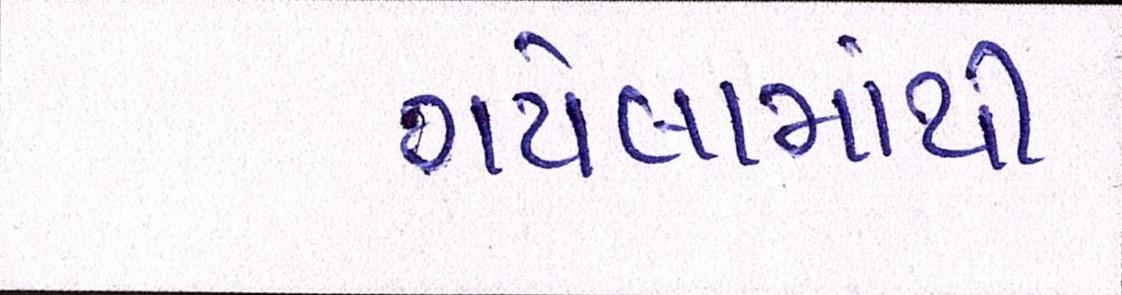 ગયેલામાંથી